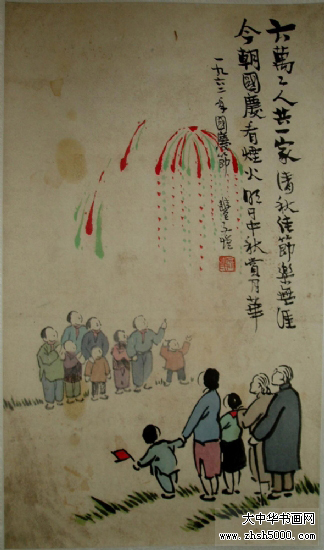 六萬々人共一家 清秋佳節樂無涯
今朝國慶看煙火 明日中秋賞月華
一九六三年國慶節
豐子愷
大中华书画网
www.zhsh5000.com